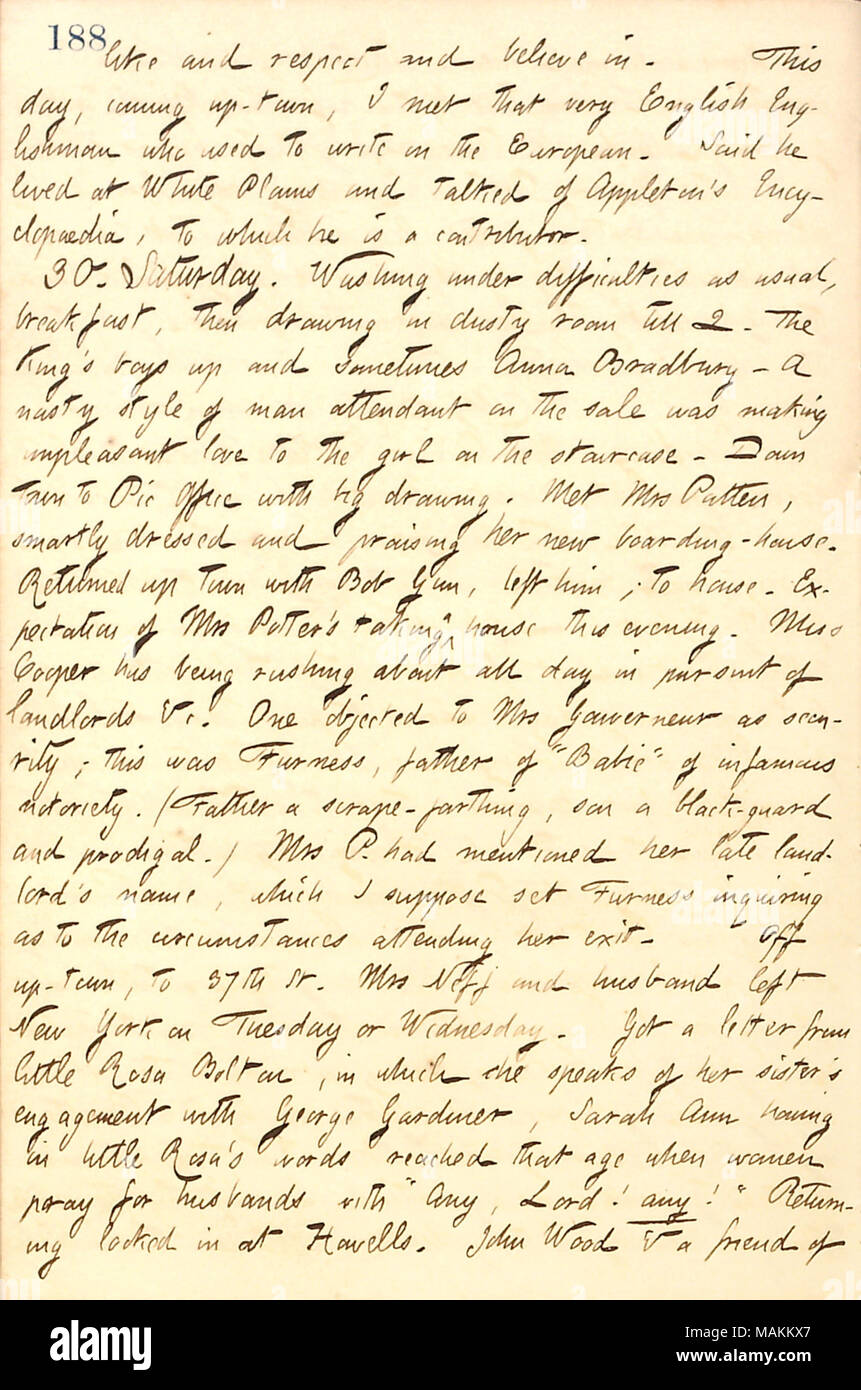 188
like and respect and believe in. This
day, coming up-town, I met that very English Eng-
lishman who used to write on the European. Said he
lived at White Plains and talked of Appleton's Ency-
clopaedia, to which he is a contributor.
30. Saturday. Washing under difficulties as usual,
breakfast, then drawing in dusty room till 2. The
King's boys up and sometimes Anna Bradbury - A
nasty style of man attendant on the sale was making
unpleasant love to the girl on the staircase - Down
town to Pic Office with big drawing. Met Mrs Patten,
smartly dressed and praising her new boarding-house.
Returned up town with Bob Gun, left him; to house. Ex-
pectation of Mrs Potter's taking a house this evening. Miss
Cooper has being rushing about all day in pursuit of
landlords &c. One objected to Mrs Gouverneur as secu-
rity; this was Furness, father of "Babie" of infamous
notoriety. (Father a scrape-farthing, son a black-guard
and prodigal.) Mrs P. had mentioned her late land-
lord's name, which I suppose set Furness inquiring
as to the circumstances attending her exit. Off
up-town, to 37th St. Mrs Neff and husband left
New York on Tuesday or Wednesday. Got a letter from
little Rosa Bolton, in which she speaks of her sister's
engagement with George Gardiner, Sarah Ann having
in little Rosa's words reached that age when women
pray for husbands with "Any, Lord! any!" Return-
ing looked in at Havells. John Wood & a friend of
alamy
Image ID: MAKKX7
www.alamy.com